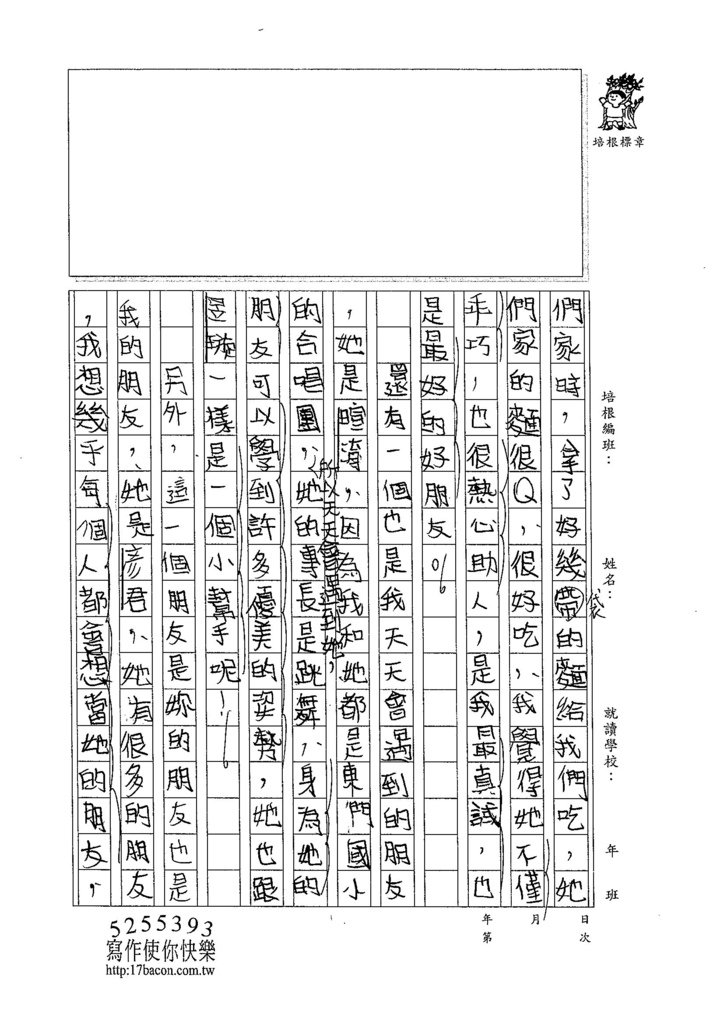 培根標章
培根編班：
姓名：
就讀學校：
年 班
年 月 日
第 次
們家時，拿了好幾帶的麵給我們吃，她
袋
們家的麵很Q，很好吃，我覺得她不僅
乖巧，也很熱心助人，是我最真誠，也
是最好的好朋友。
還有一個也是我天天會遇到的朋友
，她是暄涛，因為我和她都是東門國小
所以天天會遇到她，
的合唱團，她的專長是跳舞，身為她的
朋友可以學到許多優美的姿勢，她也跟
昱臻一樣是一個小幫手呢！
另外，這一個朋友是妳的朋友也是
我的朋友，她是彥君，她有很多的朋友
，我想幾乎每個人都會想當她的朋友，
5255393
寫作使你快樂
http:17bacon.com.tw